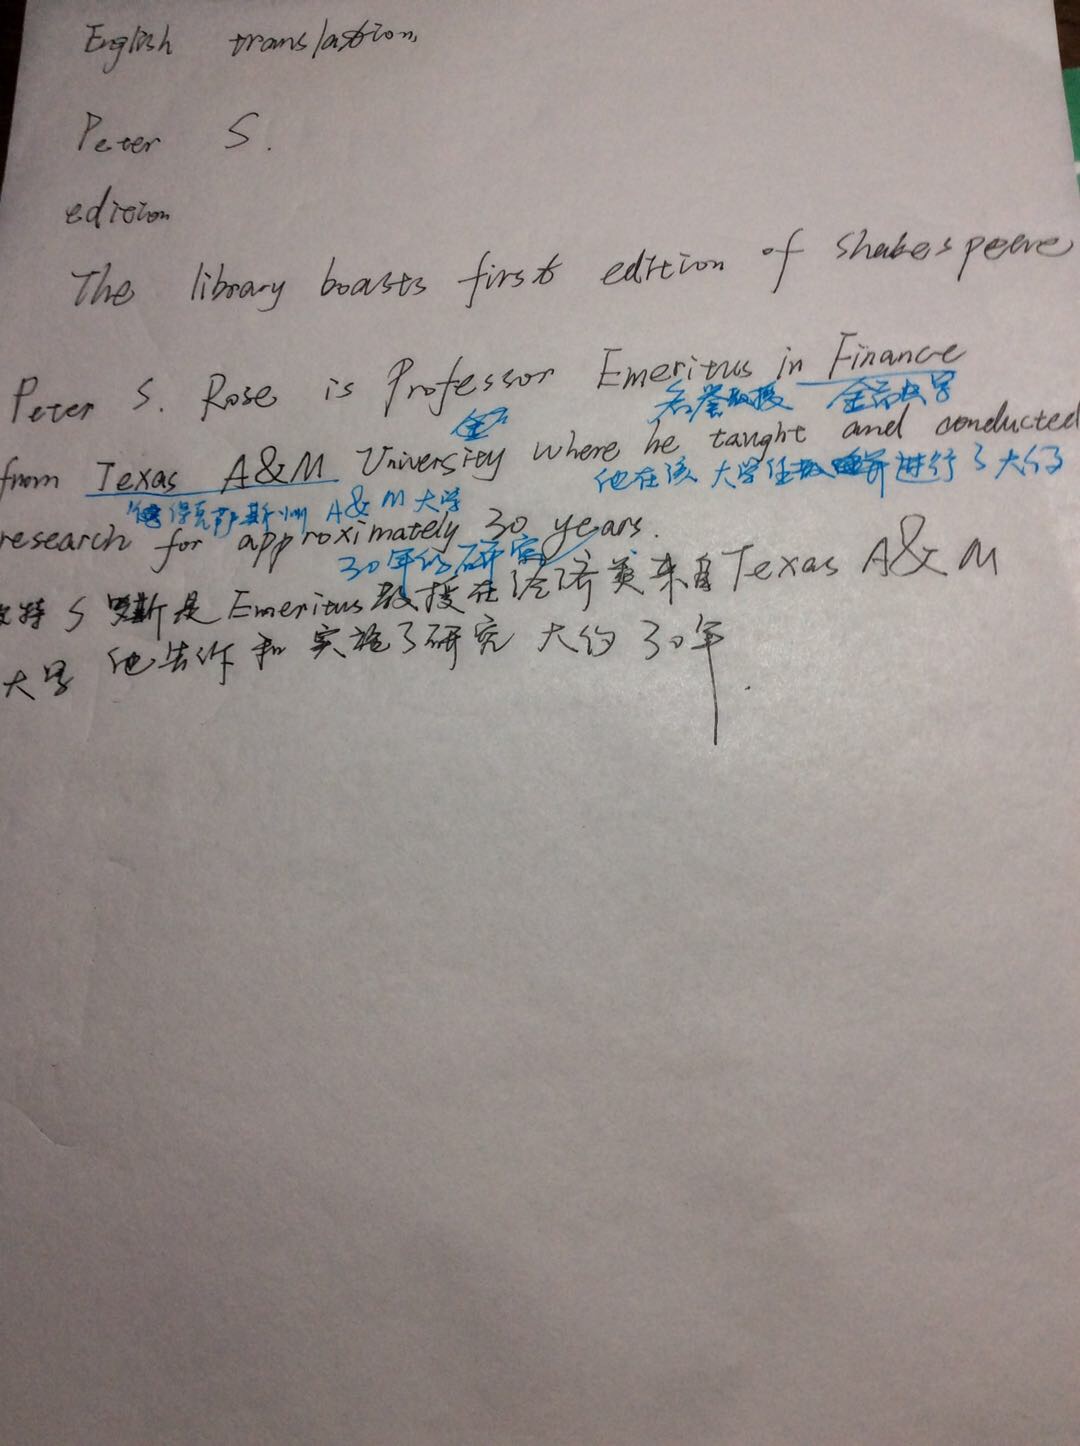 English translation,
Peter S.
edition
The library boasts first edition of Shakespeare
Peter S. Rose is Professor Emeritus in Finance
名誉教授 金融学
金
from Texas A&M University where he taught and conducted
他在该大学任教 并进行了大约
得克萨斯州 A&M大学
research for approximately 30 years.
30年的研究
特 S 罗斯是 Emeritus 教授在经济 来自 Texas A&M
大学 他 作和实施了研究 大约 30年.